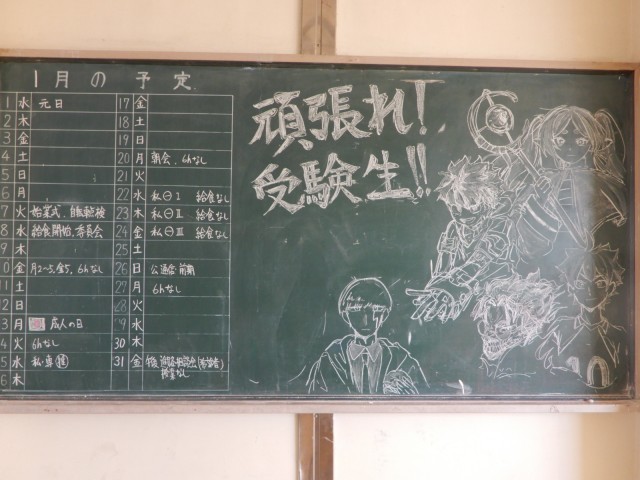 1月の予定
1 水 元日
2 木
3 金
4 土
5 日
6 月
7 火 始業式、自転車点検
8 水 給食開始、委員会
9 木
10 金 月2~5、金5、6hなし
11 土
12 日
13 月 成人の日
14 火 6hなし
15 水 私・専
16 木
17 金
18 土
19 日
20 月 朝会、6hなし
21 火
22 水 私㊀Ⅰ 給食なし
23 木 私㊀Ⅱ 給食なし
24 金 私㊀Ⅲ 給食なし
25 土
26 日 公立 前期
27 月 6hなし
28 火
29 水
30 木
31 金 午後
授業なし
頑張れ!
受験生!!